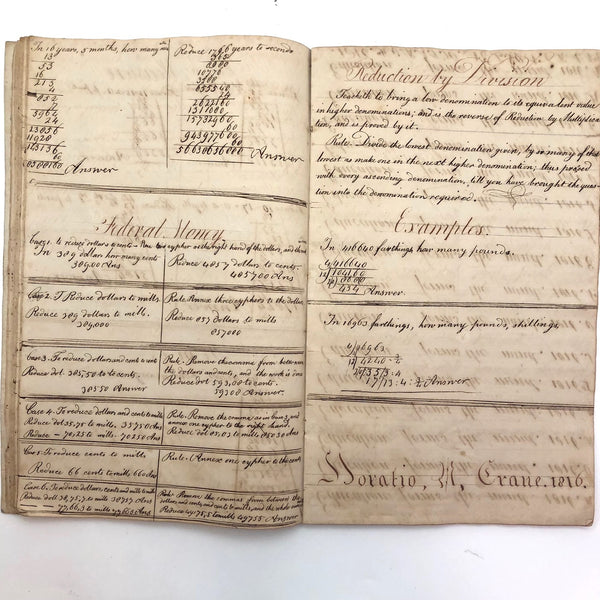 In 16 years, 5 months, how many
13
53
16
213
4
852
7
5964
24
13056
60
Answer
Reduce 1766 years to seconds
365
8830
24
60
60
Answer
Federal Money
Case 1. to reduce dollars to cents - Place two cyphers at the right hand of the dollars, and
In 389 dollar how many cents
38900 Ans
Reduce 4057 dollars to cents.
405700 Ans
Case 2. T Reduce dollars to mills
Reduce 389 dollars to mills.
389,000
Rule Annex three cyphers to the dollars
Reduce 857 dollars to mills
857000
Case 3. To reduce dollars and cents to cents
Reduce dol. 385,50 to cents.
38550 Answer
Rule. Remove the comma from between
the dollars and cents, and the work is done
Reduce dol 593,00 to cents.
59300 Answer.
Case 4. To reduce dollars and cents to mills
Reduce dol 35,75 to mills. 35750 Ans
Reduce - 70,25 to mills- 70250 Ans
Rule. Remove the comma as in Case 3, and
annex one cypher to the right hand.
Reduce dol 85,03 to mills 85030 Ans
Case 5. To reduce cents to mills
Reduce 66 cents to mills 660 Ans
Rule. Annex one cypher to the cents
Case 6. To reduce dollars, cents and mills to mills
Reduce doll 38,75,7 to mills 38757 Ans
77,66,3 to mills 77663 Ans
Rule. Remove the commas from between the
dollars and cents, and cents and mills, and the whole
Reduce 49,75,5 to mills 49755 Ans
Reduction by Division
Teacheth to bring a low denomination to its equivalent value
in higher denominations; and is the reverse of Reduction by Multiplica-
tion, and is proved by it.
Rule. Divide the lowest denomination given, by so many of that
lowest as make one in the next higher denomination; thus proceed
with every ascending denomination, till you have brought the ques-
tion into the denomination required.
Examples.
In 416640 farthings how many pounds.
4)416640
12)104160
20)8680
434 Answer.
In 16963 farthings, how many pounds, shillings,
4)16963
12)4240-3/4
20)353:4
17/13:4:3/4 Answer
Horatio, N, Crane. 1816.